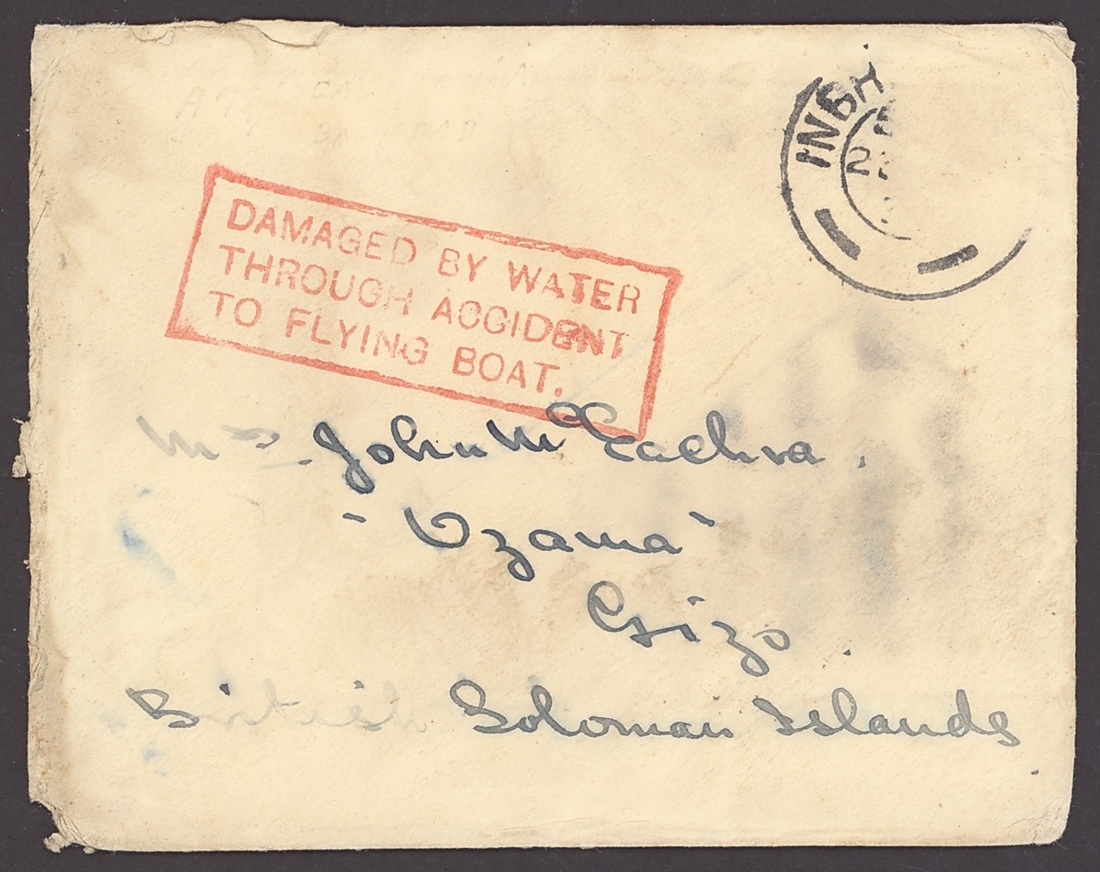 INGH
22
DAMAGED BY WATER
THROUGH ACCIDENT
TO FLYING BOAT.
Mrs John
"Ozama"
Gizo
British Solomon Islands